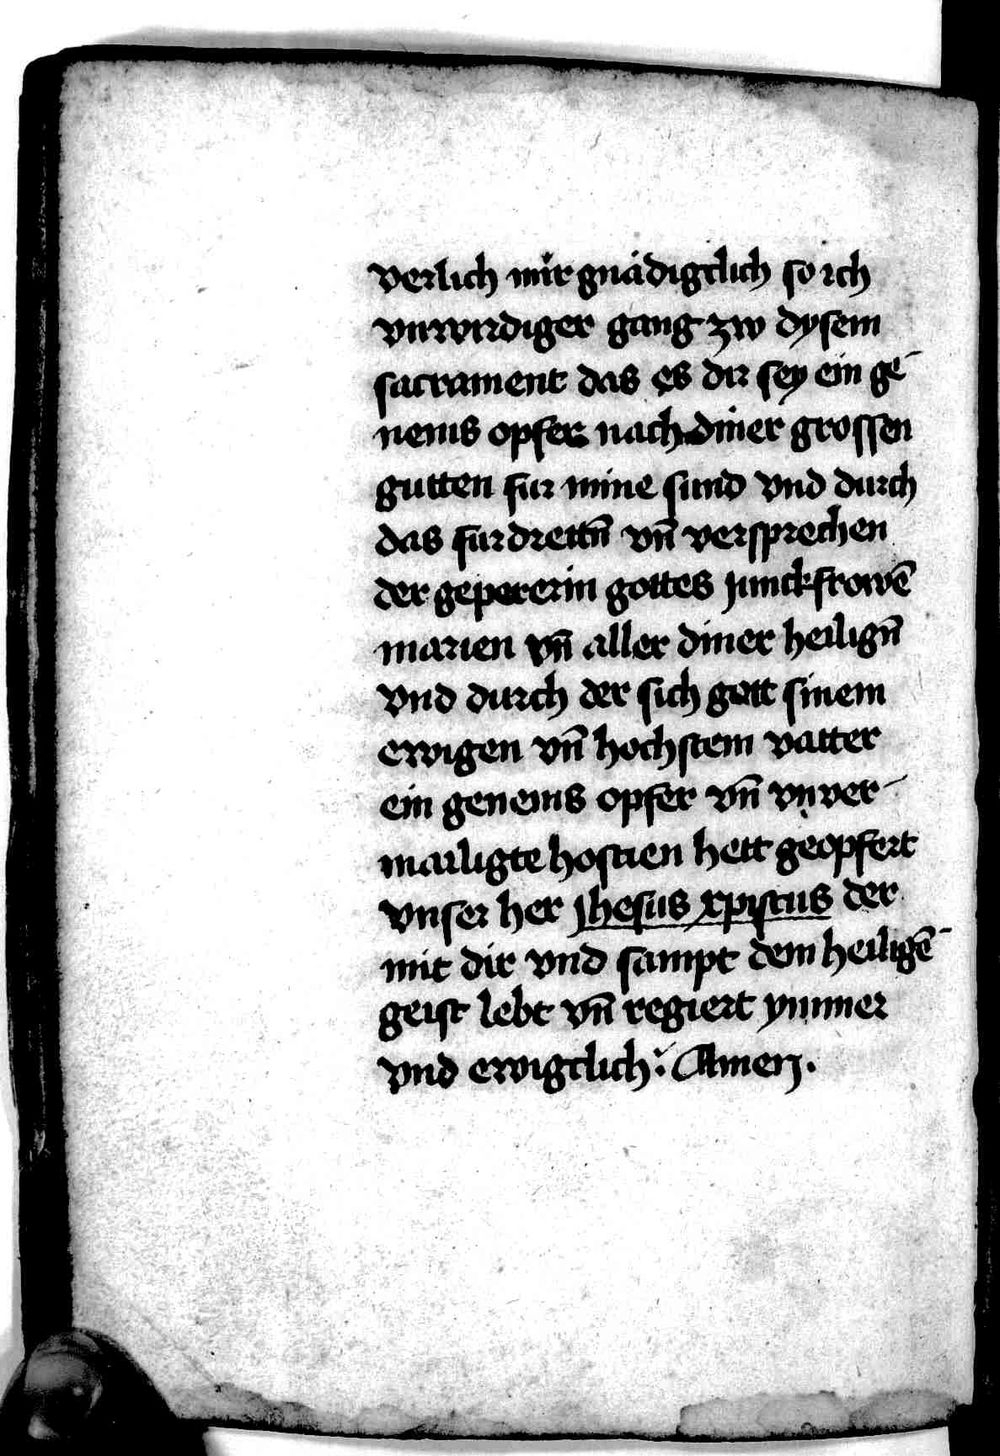 verlich mir gnådigclich so ich
vnwirdiger gang zw dysem
sacrament das es dir sey ein ge-
nems opfer nach diner grossen
gutten fur mine sund vnd durch
das furdrettn̄ vn̄ versprechen
der gepererin gottes junckfrowē
marien vn̄ aller diner heilign̄
vnd durch der sich gott sinem
ewigen vn̄ hochstem vatter
ein genems opfer vn̄ vnver-
mailigte hostien hett geopfert
vnser her jhesus xpistus der
mit dir vnd sampt dem heiligē
geist lebt vn̄ regiert ymmer
vnd ewigclich : Amen .